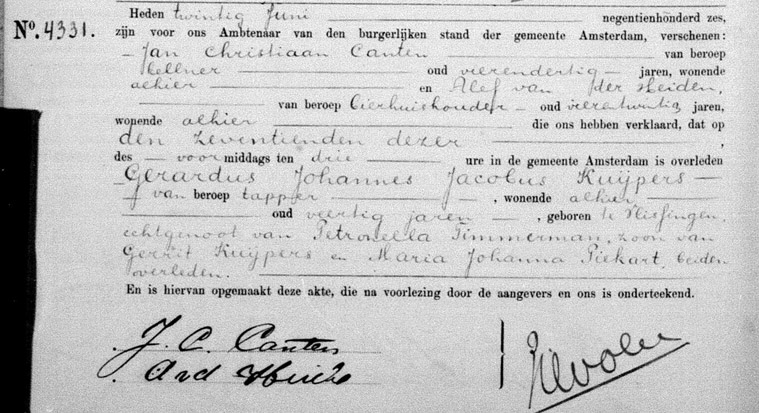 Heden twintig Juni negentienhonderd zes,
No. 4331. zijn voor ons Ambtenaar van den burgerlijken stand der gemeente Amsterdam, verschenen:
Jan Christiaan Canten van beroep
kellner oud vierendertig jaren, wonende
alhier en Alef van der Heiden,
van beroep bierhuishouder oud vierentwintig jaren,
wonende alhier die ons hebben verklaard, dat op
den zeventienden dezer
des voormiddags ten drie ure in de gemeente Amsterdam is overleden
Gerardus Johannes Jacobus Kuijpers
van beroep tapper, wonende alhier
oud veertig jaren, geboren te Vlissingen,
echtgenoot van Petronella Timmerman, zoon van
Gerrit Kuijpers en Maria Johanna Piekart, beiden
overleden.
En is hiervan opgemaakt deze akte, die na voorlezing door de aangevers en ons is onderteekend.
J. C. Canten